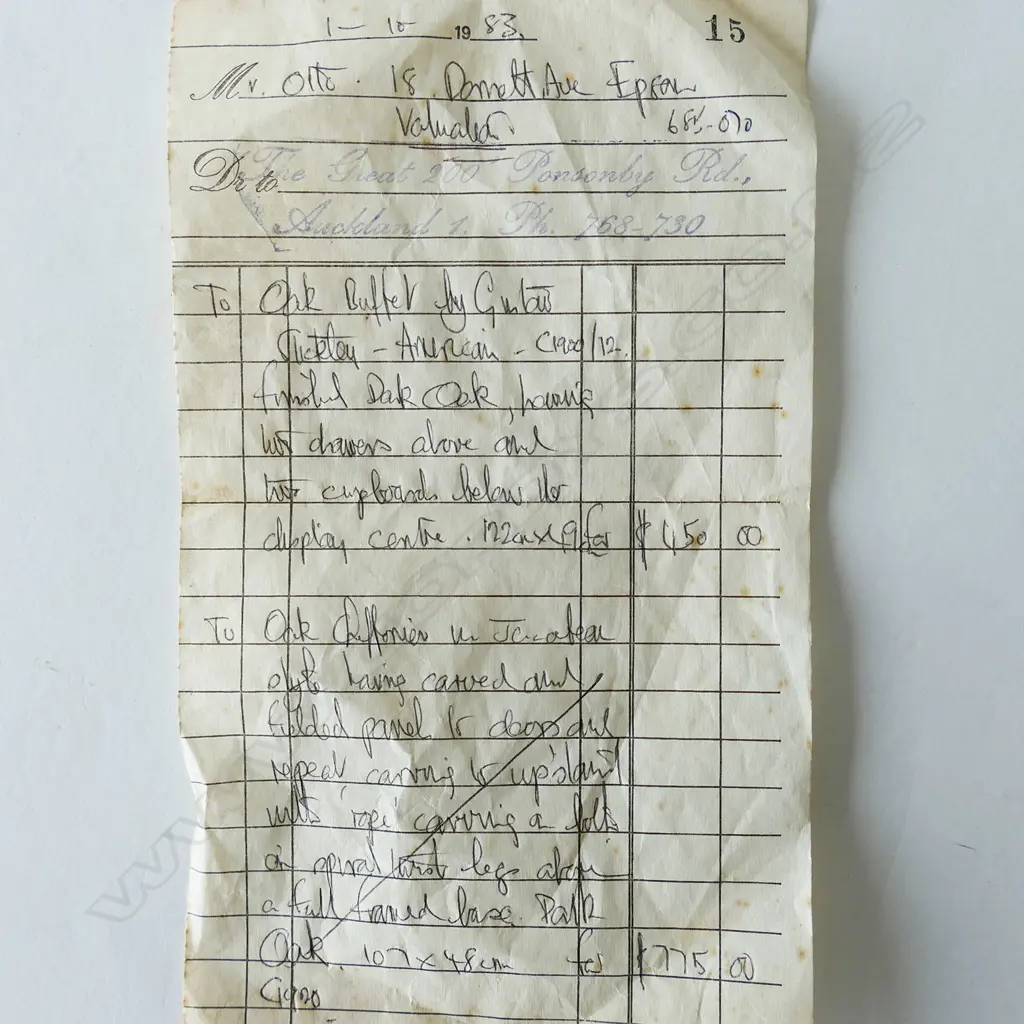 1 - 10 1983.
15
Mr. Otto. 18 Ave Epsom
Valuation
Dr to The Great 200 Ponsonby Rd.,
Auckland 1. Ph. 768-730
To Oak Buffet by Gustav
Stickley - American - C1900/12.
finished Dark Oak, having
two drawers above and
two cupboards below the
display centre. 122cm x for $ 450 00
To Oak Chiffonier in Jacobean
style having carved and
fielded panel to doors and
repeat carving to upstand
with rope carving
on spiral twist legs above
a full framed base. Dark
Oak. 107 x 48cm for $775 00
C1920